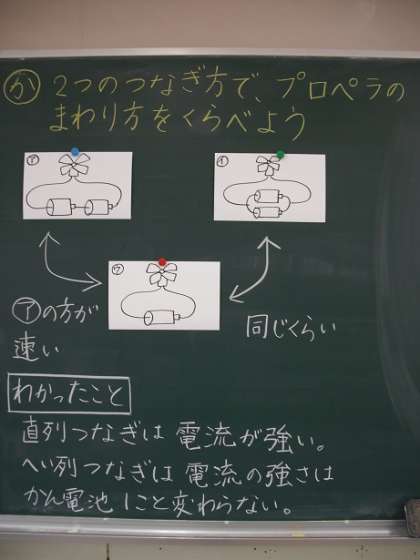 か 2つのつなぎ方で、プロペラの
まわり方をくらべよう
ア
イ
ウ
アの方が
速い
同じくらい
わかったこと
直列つなぎは 電流が強い。
へい列つなぎは 電流の強さは
かん電池1こと変わらない。